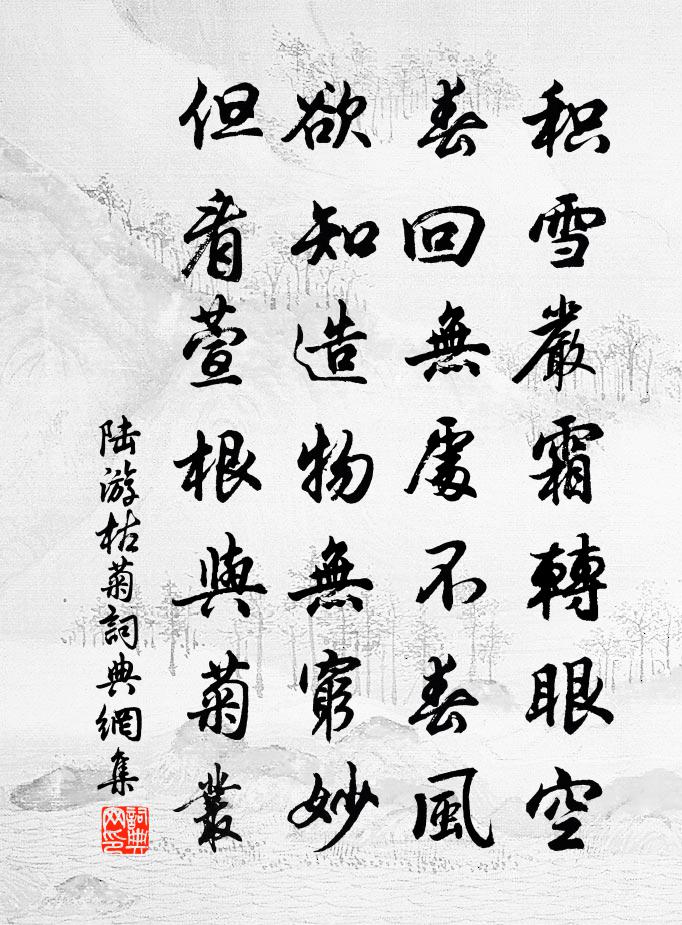 积雪嚴霜轉眼空
春回無處不春風
欲知造物無窮妙
但看萱根與菊叢
陆游枯菊詞典網集
詞典網印